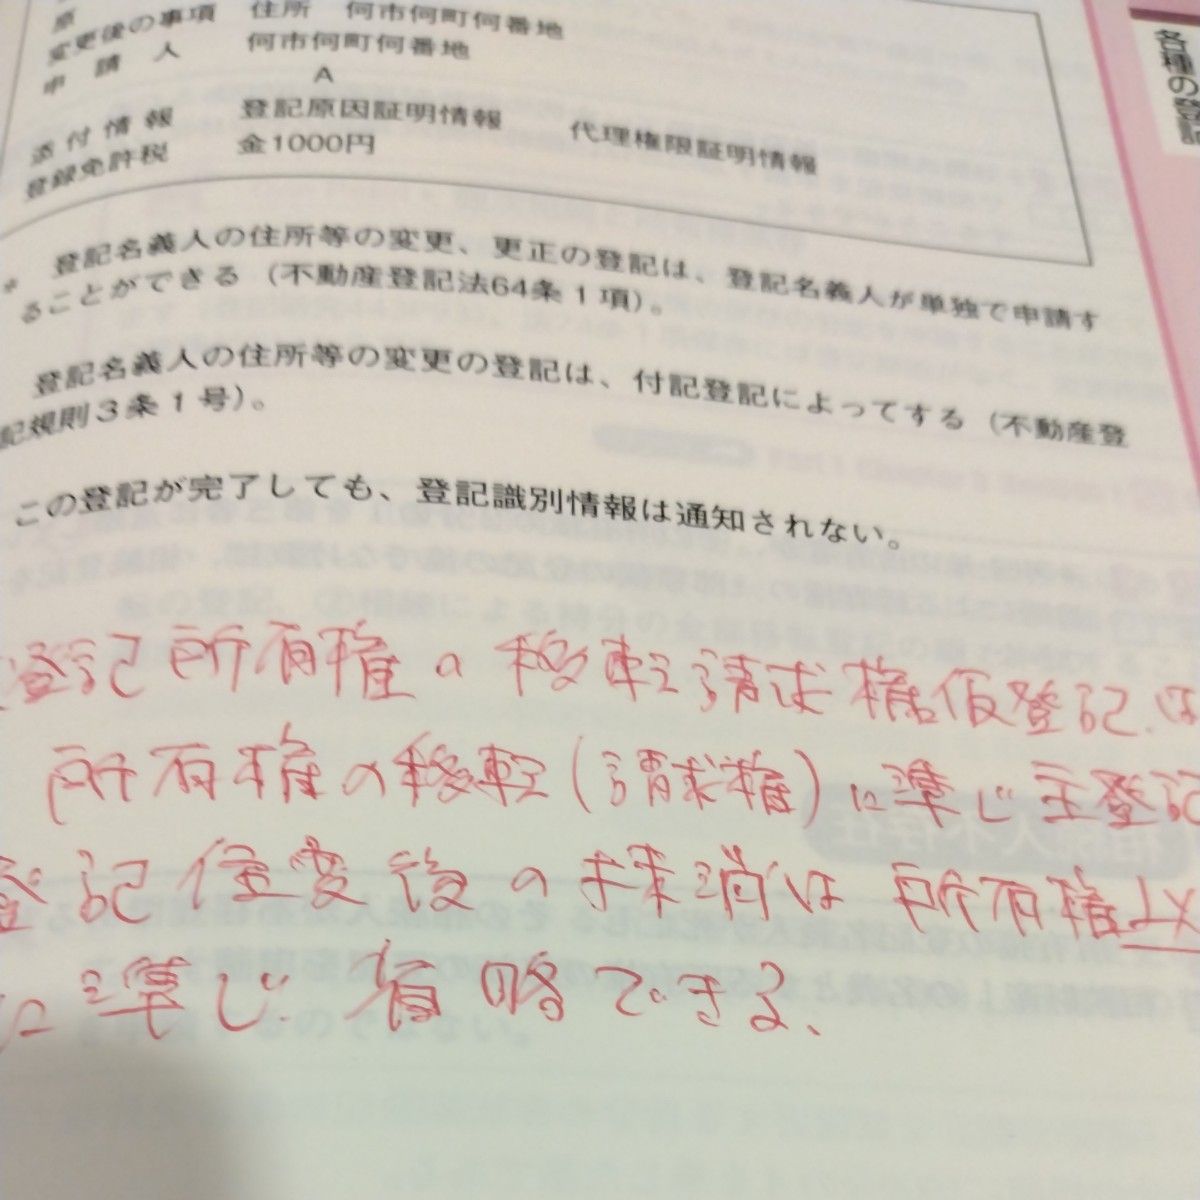 原
変更後の事項 住所 何市何町何番地
申請人 何市何町何番地
A
添付情報 登記原因証明情報 代理権限証明情報
登録免許税 金1000円
各種の登記
* 登記名義人の住所等の変更、更正の登記は、登記名義人が単独で申請す
ることができる（不動産登記法64条1項）。
登記名義人の住所等の変更の登記は、付記登記によってする（不動産登
記規則3条1号）。
この登記が完了しても、登記識別情報は通知されない。
登記所有権の移転請求権仮登記は
所有権の移転(請求権)に準じ主登記
登記住変後の抹消は所有権以
に準じ省略できる、